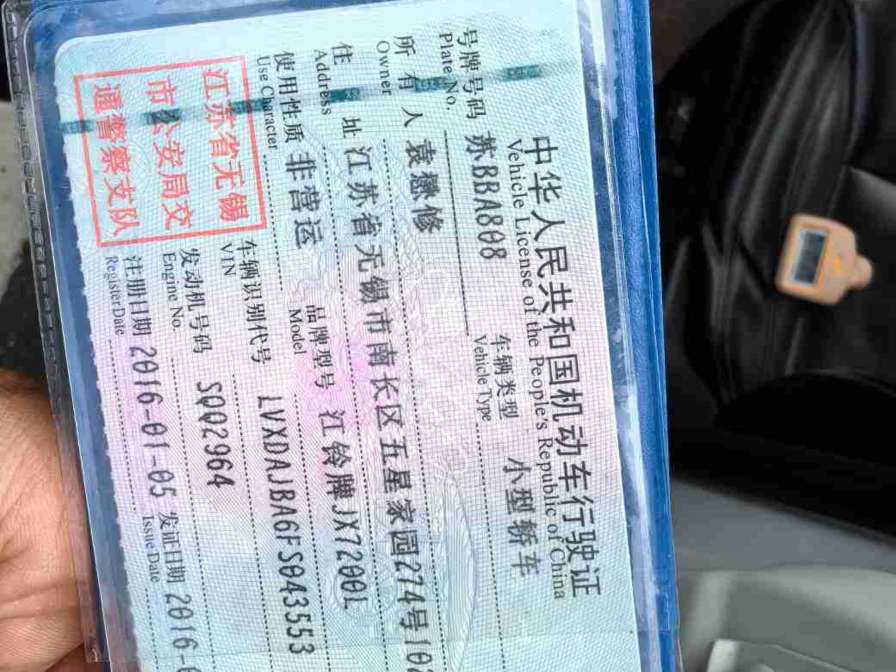 中华人民共和国机动车行驶证
Vehicle License of the People's Republic of China
号牌号码 苏BBA808 车辆类型 小型轿车
Plate No. Vehicle Type
所有人 袁懋修
Owner
住址 江苏省无锡市南长区五星家园274号10
Address
使用性质 非营运 品牌型号 江铃牌JX7200L
Use Character Model
江苏省无锡
市公安局交
通警察支队
车辆识别代号 LVXDAJBA6FS043553
VIN
发动机号码 SQQ2964
Engine No.
注册日期 2016-01-05 发证日期 2016-
Register Date Issue Date